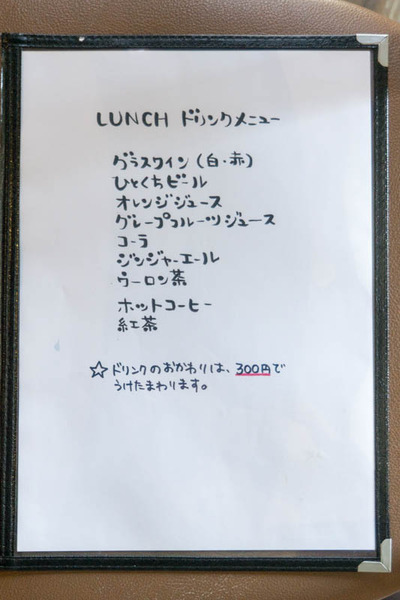 LUNCH ドリンクメニュー
グラスワイン(白・赤)
ひとくちビール
オレンジジュース
グレープフルーツジュース
コーラ
ジンジャーエール
ウーロン茶
ホットコーヒー
紅茶
☆ドリンクのおかわりは、300円で
うけたまわります。